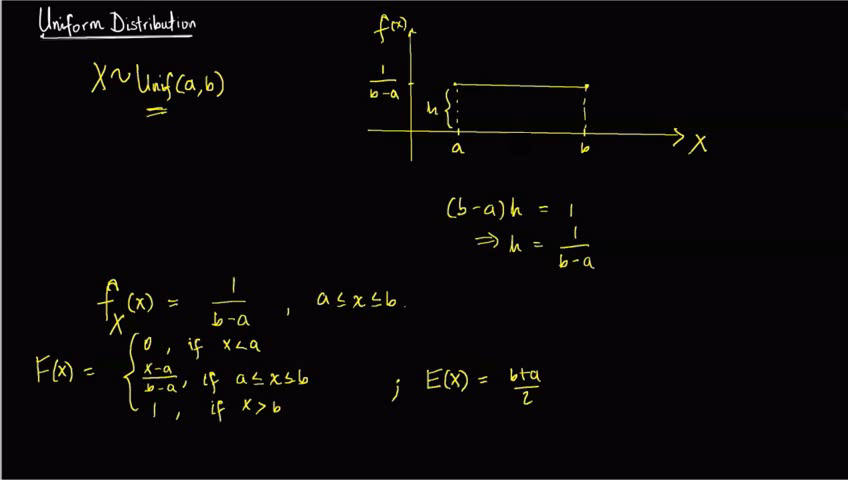 Uniform Distribution
X ~ Unif(a,b)
f(x)
1/(b-a)
h {
a
b
X
(b-a)h = 1
⇒ h = 1/(b-a)
f_X(x) = 1/(b-a) , a ≤ x ≤ b.
F(x) = {
0 , if x < a
(x-a)/(b-a) , if a ≤ x ≤ b
1 , if x > b
; E(X) = (b+a)/2